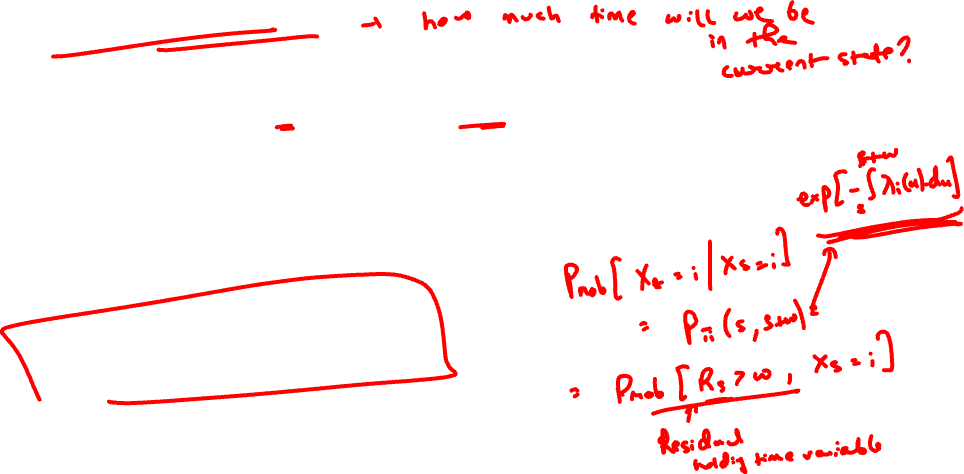 → how much time will we be
in the
current state?
exp[-∫ₛˢ⁺ʷ λi(u)du]
Prob[Xt = i | Xs = i]
= Pii(s, s+w) =
= Prob[Rs > w, Xs = i]
Residual
holdig time variable